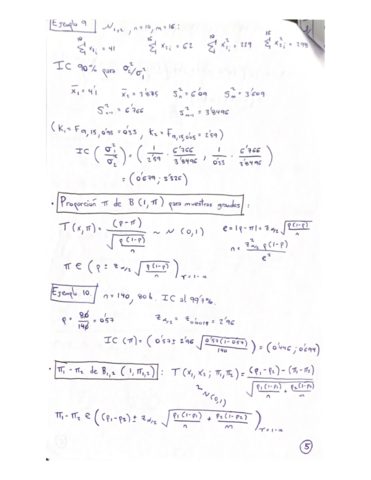 Ejemplo 9 N₁,₂, n=10, m=16:
Σx₁ᵢ = 41 Σx₂ᵢ = 62 Σx₁ᵢ² = 229 Σx₂ᵢ² = 298
IC 90% para σ₁²/σ₂²
x̄₁ = 4'1 x̄₂ = 3'875 Sₙ² = 6'09 Sₘ² = 3'609
S²ₙ₋₁ = 6'766 S²ₘ₋₁ = 3'8496
(K₁ = F₉,₁₅,₀'₉₅ = 0'33, K₂ = F₉,₁₅,₀'₀₅ = 2'59)
IC (σ₁²/σ₂²) = (1/2'59 · 6'766/3'8496, 1/0'33 · 6'766/3'8496)
= (0'679; 5'326)
• Proporción π de B(1,π) para muestras grandes:
T(x,π) = (p-π)/√(p(1-p)/n) ~ N(0,1) e = |p-π| = z_α/₂ √(p(1-p)/n)
n = z²_α/₂ p(1-p)/e²
π ∈ (p ± z_α/₂ √(p(1-p)/n))_γ=1-α
Ejemplo 10 n=140, 80 b. IC al
p = 80/140 = 0'57 z_α/₂ = = 2'96
IC (π) = (0'57 ± 2'96 √(0'57(1-0'57)/140)) = (0'446; 0'694)
• π₁-π₂ de B₁,₂(1,π₁,₂): T(x₁,x₂; π₁,π₂) = (p₁-p₂) - (π₁-π₂)/√(p₁(1-p₁)/n + p₂(1-p₂)/m)
~ N(0,1)
π₁-π₂ ∈ ((p₁-p₂) ± z_α/₂ √(p₁(1-p₁)/n + p₂(1-p₂)/m))_γ=1-α
5